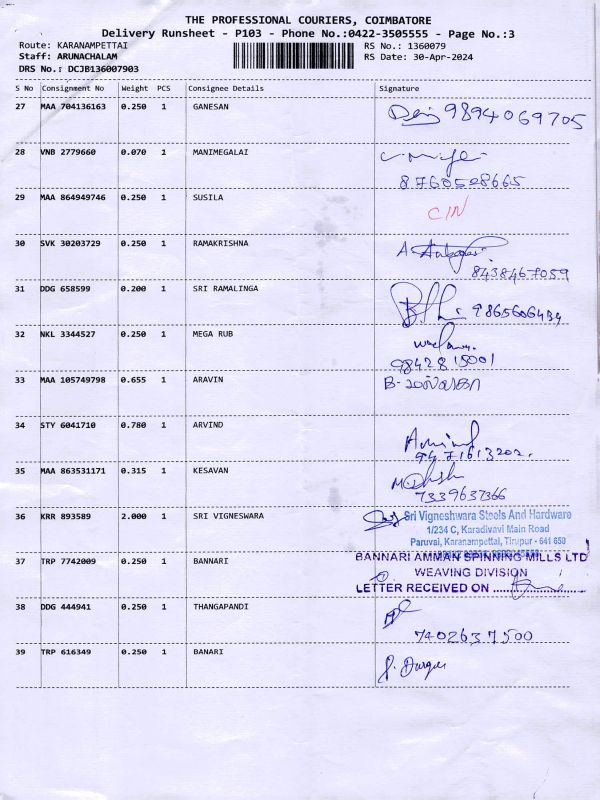 THE PROFESSIONAL COURIERS, COIMBATORE
Delivery Runsheet - P103 - Phone No.:0422-3505555 - Page No.:3
Route: KARANAMPETTAI RS No.: 1360079
Staff: ARUNACHALAM RS Date: 30-Apr-2024
DRS No.: DCJB136007903
S No Consignment No Weight PCS Consignee Details Signature
27 MAA 704136163 0.250 1 GANESAN 9894069705
28 VNB 2779660 0.070 1 MANIMEGALAI
8760508665
29 MAA 864949746 0.250 1 SUSILA
CIN
30 SVK 30203729 0.250 1 RAMAKRISHNA
8438467059
31 DDG 658599 0.200 1 SRI RAMALINGA
9865606434
32 NKL 3344527 0.250 1 MEGA RUB
9842815001
33 MAA 105749798 0.655 1 ARAVIN
34 STY 6041710 0.780 1 ARVIND
Arvind
9471613202.
35 MAA 863531171 0.315 1 KESAVAN
7339637366
36 KRR 893589 2.000 1 SRI VIGNESWARA Sri Vigneshwara Steels And Hardware
1/234 C, Karadivavi Main Road
Paruvai, Karanampettai, Tirupur - 641 658
37 TRP 7742009 0.250 1 BANNARI BANNARI AMMAN SPINNING MILLS LTD
WEAVING DIVISION
LETTER RECEIVED ON
38 DDG 444941 0.250 1 THANGAPANDI
7402637500
39 TRP 616349 0.250 1 BANARI
S. Durga